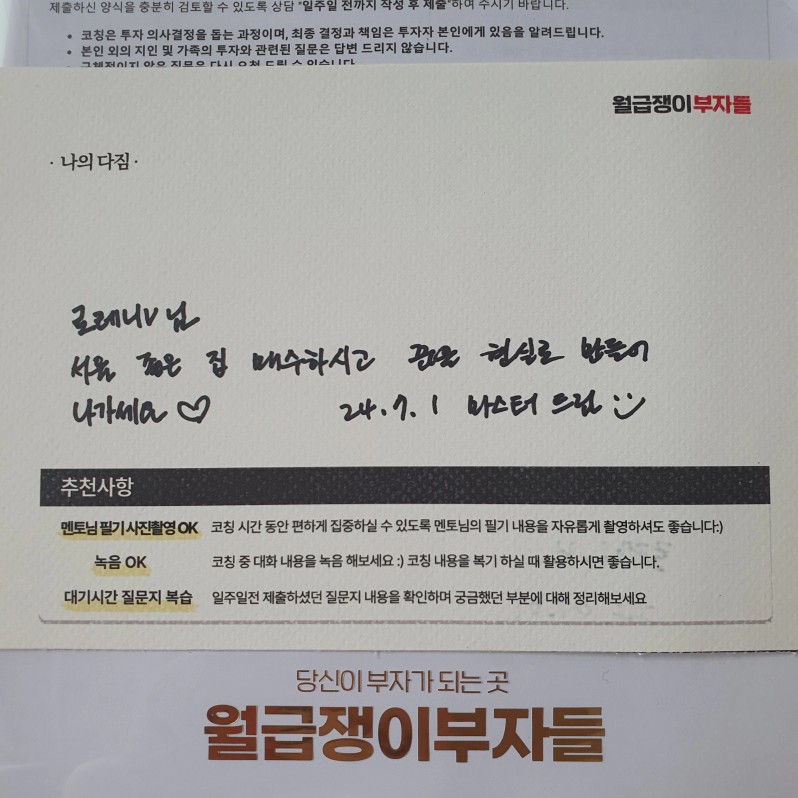 제출하신 양식을 충분히 검토할 수 있도록 상담 "일주일 전까지 작성 후 제출"하여 주시기 바랍니다.
• 코칭은 투자 의사결정을 돕는 과정이며, 최종 결정과 책임은 투자자 본인에게 있음을 알려드립니다.
• 본인 외의 지인 및 가족의 투자와 관련된 질문은 답변 드리지 않습니다.
• 구체적이지 않은 질문은 다시 요청 드릴 수 있습니다.
월급쟁이부자들
· 나의 다짐 ·
로레니V 님
서울 좋은 집 매수하시고 꿈을 현실로 만들어
나가세요 ♡ 24.7.1 마스터 드림 :)
추천사항
멘토님 필기 사진촬영 OK 코칭 시간 동안 편하게 집중하실 수 있도록 멘토님의 필기 내용을 자유롭게 촬영하셔도 좋습니다:)
녹음 OK 코칭 중 대화 내용을 녹음 해보세요 :) 코칭 내용을 복기 하실 때 활용하시면 좋습니다.
대기시간 질문지 복습 일주일전 제출하셨던 질문지 내용을 확인하며 궁금했던 부분에 대해 정리해보세요
당신이 부자가 되는 곳
월급쟁이부자들